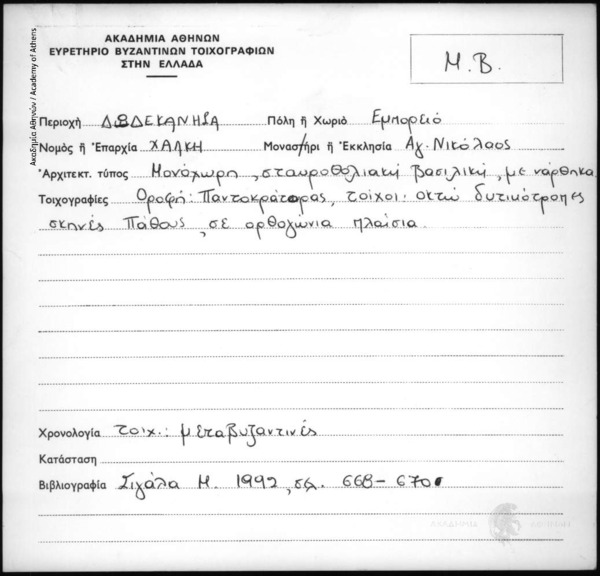 ΑΚΑΔΗΜΙΑ ΑΘΗΝΩΝ
ΕΥΡΕΤΗΡΙΟ ΒΥΖΑΝΤΙΝΩΝ ΤΟΙΧΟΓΡΑΦΙΩΝ
ΣΤΗΝ ΕΛΛΑΔΑ
Μ.Β.
Ακαδημία Αθηνών / Academy of Athens
Περιοχή ΔΩΔΕΚΑΝΗΣΑ Πόλη ἤ Χωριό Εμπορειό
Νομός ἤ Ἐπαρχία ΧΑΛΚΗ Μοναστήρι ἤ Ἐκκλησία Αγ. Νικόλαος
Ἀρχιτεκτ. τύπος Μονόχωρη, σταυροθολιακή βασιλική, με νάρθηκα
Τοιχογραφίες Οροφή: Παντοκράτορας, τοίχοι: οκτώ δυτικότροπες
σκηνές Πάθους, σε ορθογώνια πλαίσια.
Χρονολογία τοιχ.: μεταβυζαντινές
Κατάσταση
Βιβλιογραφία Σιγάλα Μ. 1992, σελ. 668-670
ΑΚΑΔΗΜΙΑ ΑΘΗΝΩΝ